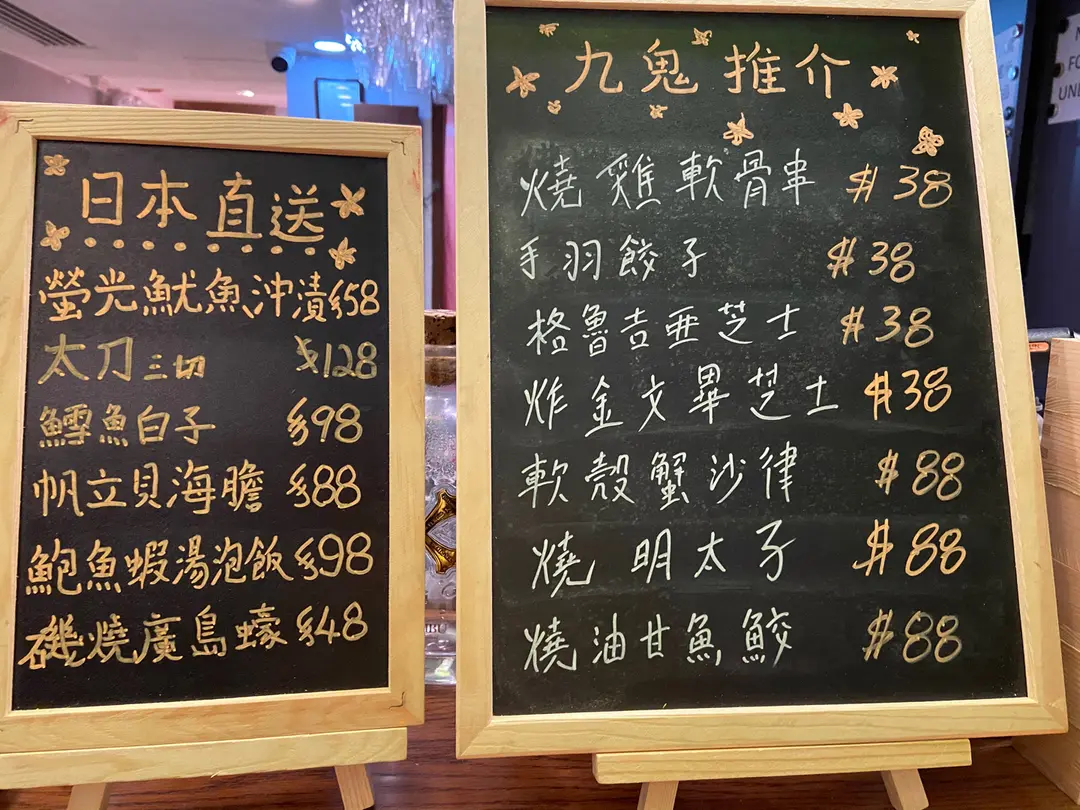 日本直送
螢光魷魚沖漬$58
太刀三切 $128
鱈魚白子 $98
帆立貝海膽 $88
鮑魚蝦湯泡飯$98
磯燒廣島蠔$48
九鬼推介
燒雞軟骨串 $38
手羽餃子 $38
格魯吉亜芝士 $38
炸金文畢芝士 $38
軟殼蟹沙律 $88
燒明太子 $88
燒油甘魚鮫 $88
FO
UNE